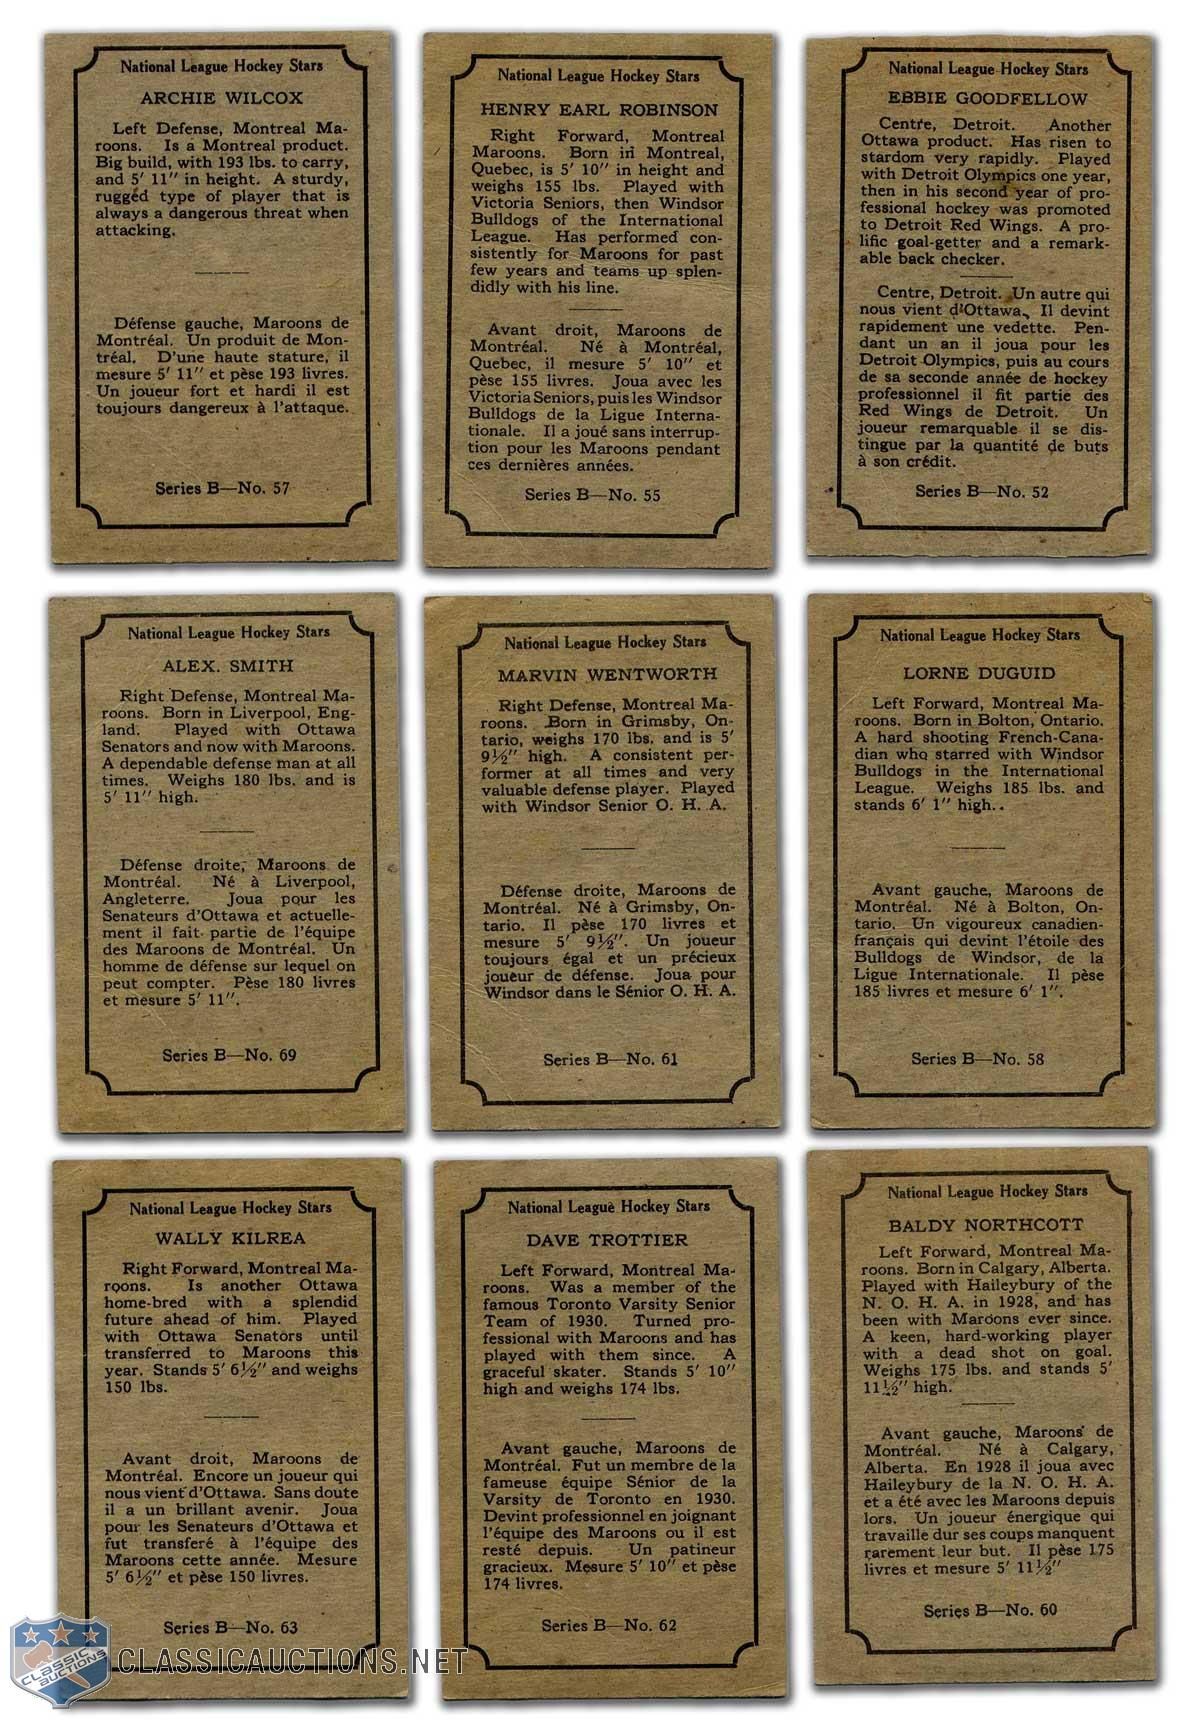 National League Hockey Stars
ARCHIE WILCOX
Left Defense, Montreal Ma-
roons. Is a Montreal product.
Big build, with 193 lbs. to carry,
and 5' 11" in height. A sturdy,
rugged type of player that is
always a dangerous threat when
attacking.
Défense gauche, Maroons de
Montréal. Un produit de Mon-
tréal. D'une haute stature, il
mesure 5' 11" et pèse 193 livres.
Un joueur fort et hardi il est
toujours dangereux à l'attaque.
Series B—No. 57
National League Hockey Stars
HENRY EARL ROBINSON
Right Forward, Montreal
Maroons. Born in Montreal,
Quebec, is 5' 10" in height and
weighs 155 lbs. Played with
Victoria Seniors, then Windsor
Bulldogs of the International
League. Has performed con-
sistently for Maroons for past
few years and teams up splen-
didly with his line.
Avant droit, Maroons de
Montréal. Né à Montréal,
Quebec, il mesure 5' 10" et
pèse 155 livres. Joua avec les
Victoria Seniors, puis les Windsor
Bulldogs de la Ligue Interna-
tionale. Il a joué sans interrup-
tion pour les Maroons pendant
ces dernières années.
Series B—No. 55
National League Hockey Stars
EBBIE GOODFELLOW
Centre, Detroit. Another
Ottawa product. Has risen to
stardom very rapidly. Played
with Detroit Olympics one year,
then in his second year of pro-
fessional hockey was promoted
to Detroit Red Wings. A pro-
lific goal-getter and a remark-
able back checker.
Centre, Detroit. Un autre qui
nous vient d'Ottawa. Il devint
rapidement une vedette. Pen-
dant un an il joua pour les
Detroit Olympics, puis au cours
de sa seconde année de hockey
professionnel il fit partie des
Red Wings de Detroit. Un
joueur remarquable il se dis-
tingue par la quantité de buts
à son crédit.
Series B—No. 52
National League Hockey Stars
ALEX. SMITH
Right Defense, Montreal Ma-
roons. Born in Liverpool, Eng-
land. Played with Ottawa
Senators and now with Maroons.
A dependable defense man at all
times. Weighs 180 lbs. and is
5' 11" high.
Défense droite, Maroons de
Montréal. Né à Liverpool,
Angleterre. Joua pour les
Senateurs d'Ottawa et actuelle-
ment il fait partie de l'équipe
des Maroons de Montréal. Un
homme de défense sur lequel on
peut compter. Pèse 180 livres
et mesure 5' 11".
Series B—No. 69
National League Hockey Stars
MARVIN WENTWORTH
Right Defense, Montreal Ma-
roons. Born in Grimsby, On-
tario, weighs 170 lbs. and is 5'
9½" high. A consistent per-
former at all times and very
valuable defense player. Played
with Windsor Senior O. H. A.
Défense droite, Maroons de
Montréal. Né à Grimsby, On-
tario. Il pèse 170 livres et
mesure 5' 9½". Un joueur
toujours égal et un précieux
joueur de défense. Joua pour
Windsor dans le Sénior O. H. A.
Series B—No. 61
National League Hockey Stars
LORNE DUGUID
Left Forward, Montreal Ma-
roons. Born in Bolton, Ontario.
A hard shooting French-Cana-
dian who starred with Windsor
Bulldogs in the International
League. Weighs 185 lbs. and
stands 6' 1" high..
Avant gauche, Maroons de
Montréal. Né à Bolton, On-
tario. Un vigoureux canadien-
français qui devint l'étoile des
Bulldogs de Windsor, de la
Ligue Internationale. Il pèse
185 livres et mesure 6' 1".
Series B—No. 58
National League Hockey Stars
WALLY KILREA
Right Forward, Montreal Ma-
roons. Is another Ottawa
home-bred with a splendid
future ahead of him. Played
with Ottawa Senators until
transferred to Maroons this
year. Stands 5' 6½" and weighs
150 lbs.
Avant droit, Maroons de
Montréal. Encore un joueur qui
nous vient d'Ottawa. Sans doute
il a un brillant avenir. Joua
pour les Senateurs d'Ottawa et
fut transferé à l'équipe des
Maroons cette année. Mesure
5' 6½" et pèse 150 livres.
Series B—No. 63
National League Hockey Stars
DAVE TROTTIER
Left Forward, Montreal Ma-
roons. Was a member of the
famous Toronto Varsity Senior
Team of 1930. Turned pro-
fessional with Maroons and has
played with them since. A
graceful skater. Stands 5' 10"
high and weighs 174 lbs.
Avant gauche, Maroons de
Montréal. Fut un membre de la
fameuse équipe Sénior de la
Varsity de Toronto en 1930.
Devint professionnel en joignant
l'équipe des Maroons ou il est
resté depuis. Un patineur
gracieux. Mesure 5' 10" et pèse
174 livres.
Series B—No. 62
National League Hockey Stars
BALDY NORTHCOTT
Left Forward, Montreal Ma-
roons. Born in Calgary, Alberta.
Played with Haileybury of the
N. O. H. A. in 1928, and has
been with Maroons ever since.
A keen, hard-working player
with a dead shot on goal.
Weighs 175 lbs. and stands 5'
11½" high.
Avant gauche, Maroons de
Montréal. Né à Calgary,
Alberta. En 1928 il joua avec
Haileybury de la N. O. H. A.
et a été avec les Maroons depuis
lors. Un joueur énergique qui
travaille dur ses coups manquent
rarement leur but. Il pèse 175
livres et mesure 5' 11½"
Series B—No. 60
CLASSIC
AUCTIONS
CLASSICAUCTIONS.NET